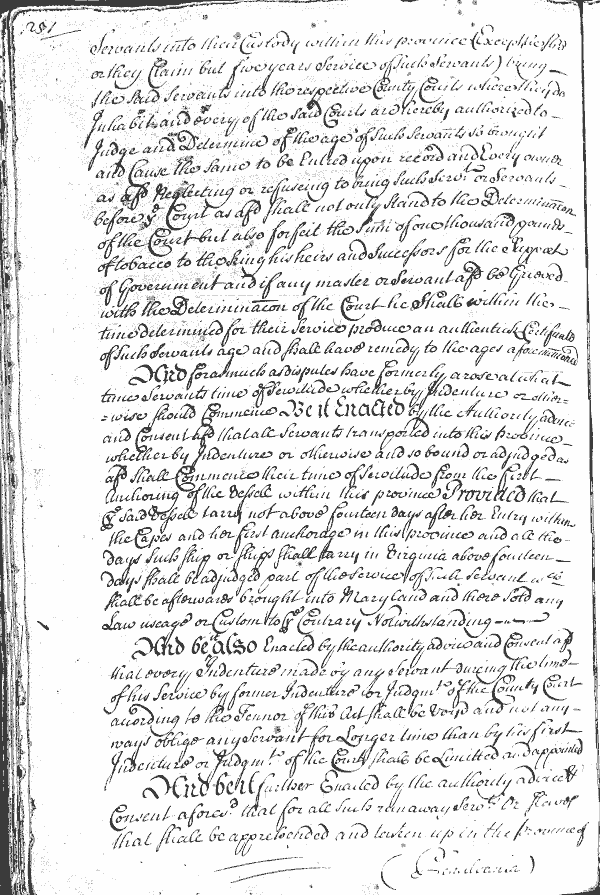 251
Servants into their Custody within this province (Except he she
or they Claim but five years Service of such Servants) bring
the said Servants into the respective County Courts where they do
Inhabit and every of the said Courts are hereby authorized to
Judge and Determine of the age of such Servants so brought
and Cause the same to be Entred upon record and Every owner
as afd Neglecting or refuseing to bring such Servt or Servants
before ye Court as afd shall not only stand to the Determination
of the Court but also forfeit the sum of one thousand pounds
of tobacco to the King his heirs and Successors for the Support
of Government and if any master or Servant afd be Grieved
with the Determinacon of the Court he Shall within the
time determined for their Service produce an authentick Certificate
of such Servants age and shall have remedy to the ages aforementioned
And forasmuch as disputes have formerly arose at what
time Servants time of Servitude whether by Indenture or other=
=wise should Commence Be it Enacted by the Authority advice
and Consent afd that all Servants transported into this Province
whether by Indenture or otherwise and so bound or adjudged as
afd shall Commence their time of Servitude from the first
Anchoring of the Vessell within this province Provided that
ye said Vessell tarry not above fourteen days after her Entry within
the Capes and her first anchorage in this province and all the
days such ship or ships shall tarry in Virginia above fourteen
days shall be adjudged part of the Service of such Servant as
shall be afterwards brought into Maryland and there Sold any
Law useage or Custom to ye Contrary Notwithstanding
And be it also Enacted by the authority advice and Consent afd
that every Indenture made by any Servant dureing the time
of his Service by former Indenture or Judgmt. of the County Court
according to the Tennor of this Act shall be Void and not any
ways oblige any Servant for Longer time than by his first
Indenture or Judgmt. of the Court shall be Limitted and appointed
And be it further Enacted by the authority advice &
Consent aforesd. that for all such runaway Servts. Or slaves
that shall be apprehended and taken up in the province of
(Pensilvania)